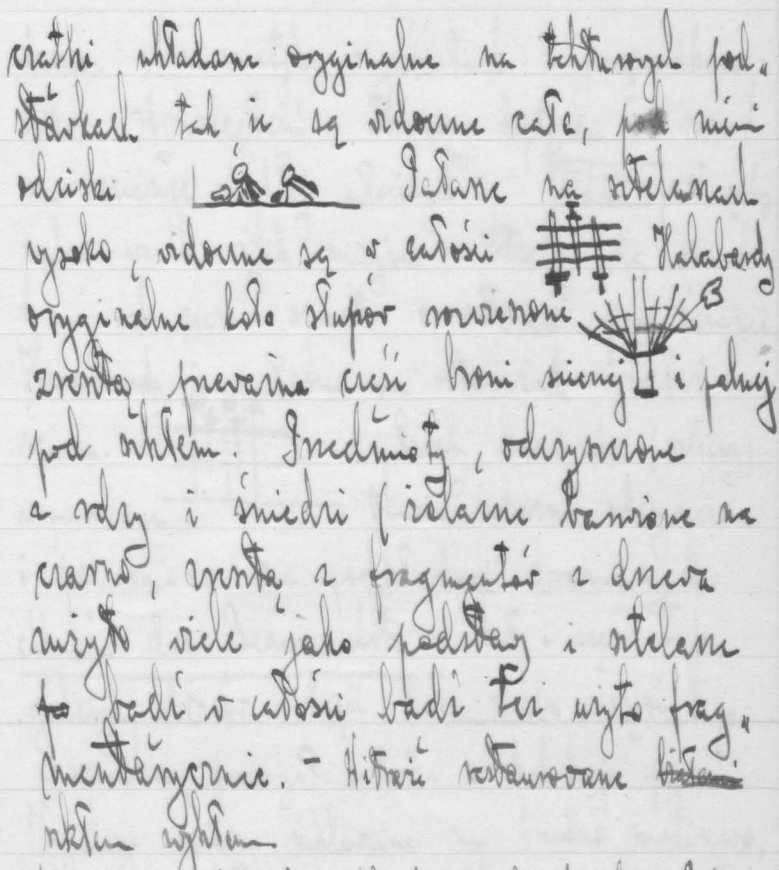 układane oryginalne na tekturowych pod„
stawkach tak że są widoczne całe, pod nimi
odciski na stelarzach
wysoko, widoczne są w całości Halabardy
oryginalne koło słupów rozwieszone
zresztą przeważna część broni siecznej i palnej
pod szkłem. Przedmioty, oderwane
z rdzy i śniedzi żelazne barwione na
czarno zresztą z fragmentów z drzewa
użyto wiele jako podstawy i stelarze
bądź w całości bądź też użyto frag„
mentarycznie. – Witraże restaurowane
szkłem zwykłem